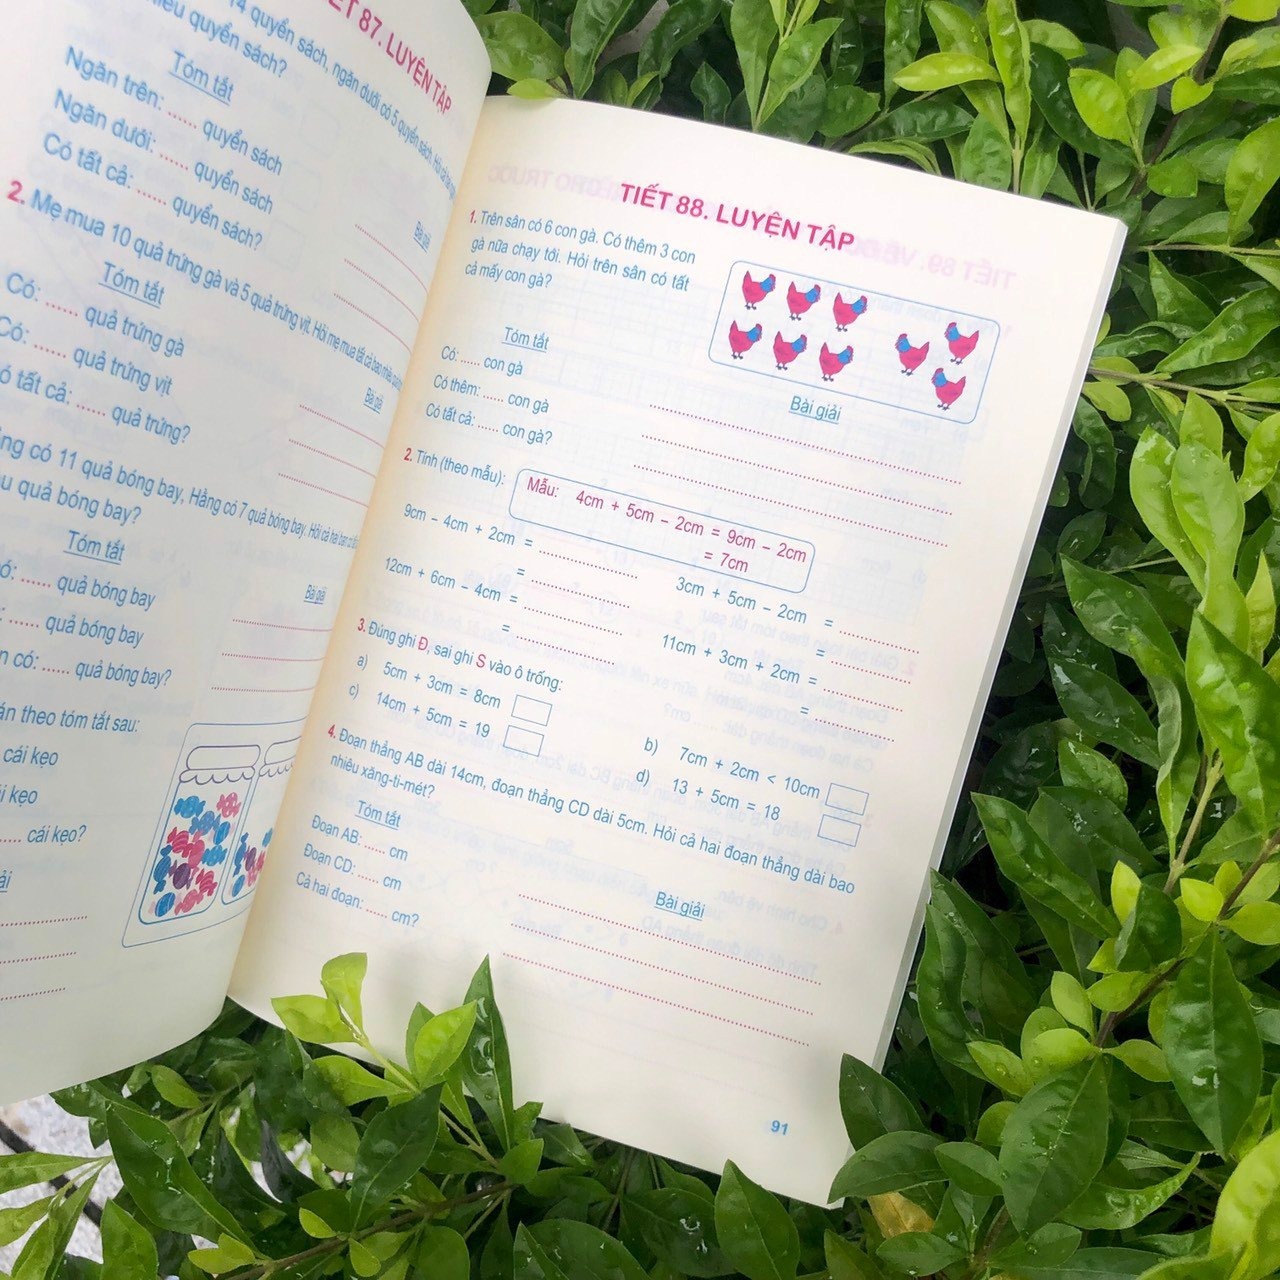 TIẾT 87. LUYỆN TẬP
14 quyển sách, ngăn dưới có 5 quyển sách. Hỏi cả
quyển sách?
Tóm tắt
Ngăn trên: ...... quyển sách
Ngăn dưới: ...... quyển sách
Có tất cả: ...... quyển sách?
Bài giải
2. Mẹ mua 10 quả trứng gà và 5 quả trứng vịt. Hỏi mẹ mua tất cả bao nhiêu
Tóm tắt
Có: ...... quả trứng gà
Có: ...... quả trứng vịt
tất cả: ...... quả trứng?
Bài giải
có 11 quả bóng bay, Hằng có 7 quả bóng bay. Hỏi cả hai bạn có
quả bóng bay?
Tóm tắt
...... quả bóng bay
...... quả bóng bay
có: ...... quả bóng bay?
Bài giải
theo tóm tắt sau:
cái kẹo
kẹo
...... cái kẹo?
TIẾT 88. LUYỆN TẬP
1. Trên sân có 6 con gà. Có thêm 3 con
gà nữa chạy tới. Hỏi trên sân có tất
cả mấy con gà?
Tóm tắt
Có: ...... con gà
Có thêm: ...... con gà
Có tất cả: ...... con gà?
Bài giải
2. Tính (theo mẫu):
Mẫu: 4cm + 5cm – 2cm = 9cm – 2cm
= 7cm
9cm – 4cm + 2cm = ..................
= ..................
3cm + 5cm – 2cm = ..................
= ..................
12cm + 6cm – 4cm = ..................
= ..................
11cm + 3cm + 2cm = ..................
= ..................
3. Đúng ghi Đ, sai ghi S vào ô trống:
a) 5cm + 3cm = 8cm
b) 7cm + 2cm < 10cm
c) 14cm + 5cm = 19
d) 13 + 5cm = 18
4. Đoạn thẳng AB dài 14cm, đoạn thẳng CD dài 5cm. Hỏi cả hai đoạn thẳng dài bao
nhiêu xăng-ti-mét?
Tóm tắt
Đoạn AB: ...... cm
Đoạn CD: ...... cm
Cả hai đoạn: ...... cm?
Bài giải
91